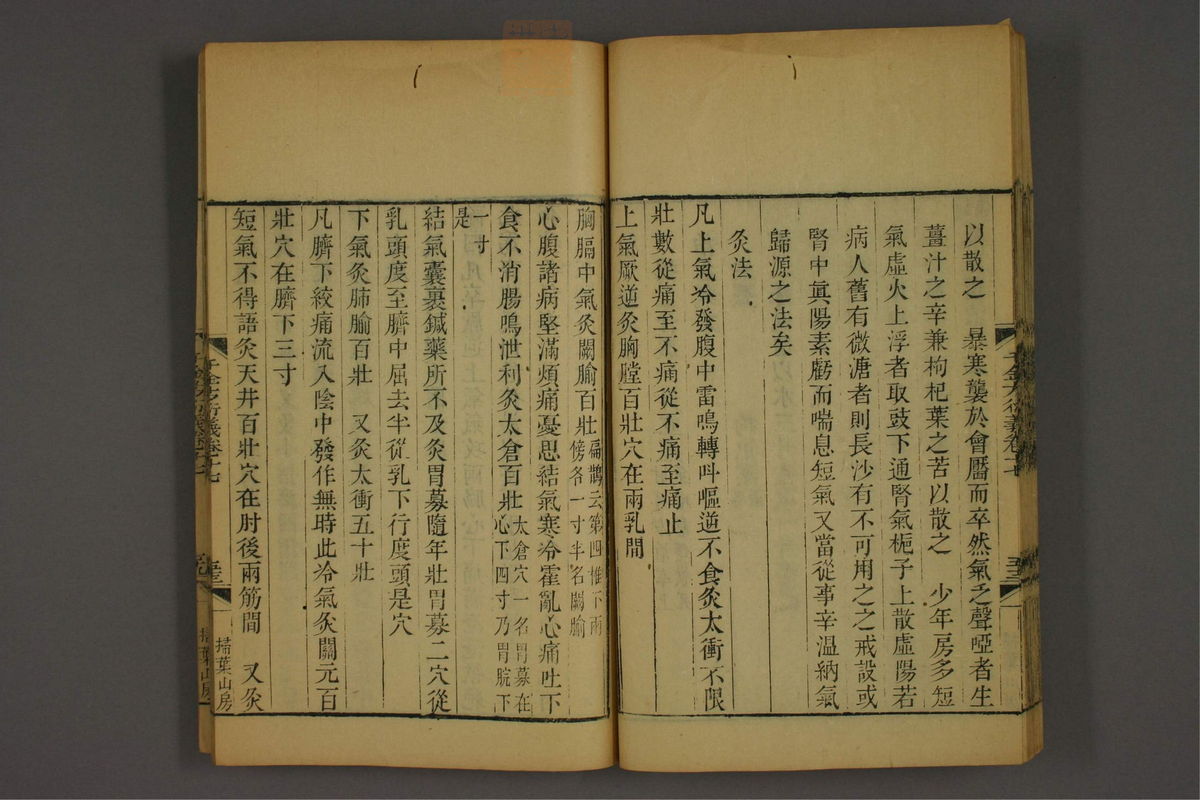 以散之　暴寒襲於會厭而卒然氣乏聲啞者生
薑汁之辛兼枸杞葉之苦以散之　少年房多短
氣虛火上浮者取豉下通腎氣梔子上散虛陽若
病人舊有微溏者則長沙有不可用之之戒設或
腎中眞陽素虧而喘息短氣又當從事辛溫納氣
歸源之法矣
灸法
凡上氣冷發腹中雷鳴轉呌嘔逆不食灸太衝不限
壯數從痛至不痛從不痛至痛止
上氣厥逆灸胸膛百壯穴在兩乳間
胸膈中氣灸闕腧百壯扁鵲云第四椎下兩
傍各一寸半名闕腧
心腹諸病堅滿煩痛憂思結氣寒冷霍亂心痛吐下
食不消腸鳴泄利灸太倉百壯太倉穴一名胃募在
心下四寸乃胃脘下
一寸
是
結氣囊裹鍼藥所不及灸胃募隨年壯胃募二穴從
乳頭度至臍中屈去半從乳下行度頭是穴
下氣灸肺腧百壯　又灸太衝五十壯
凡臍下絞痛流入陰中發作無時此冷氣灸關元百
壯穴在臍下三寸
短氣不得語灸天井百壯穴在肘後兩筋間　又灸
千金方衍義卷十七
掃葉山房